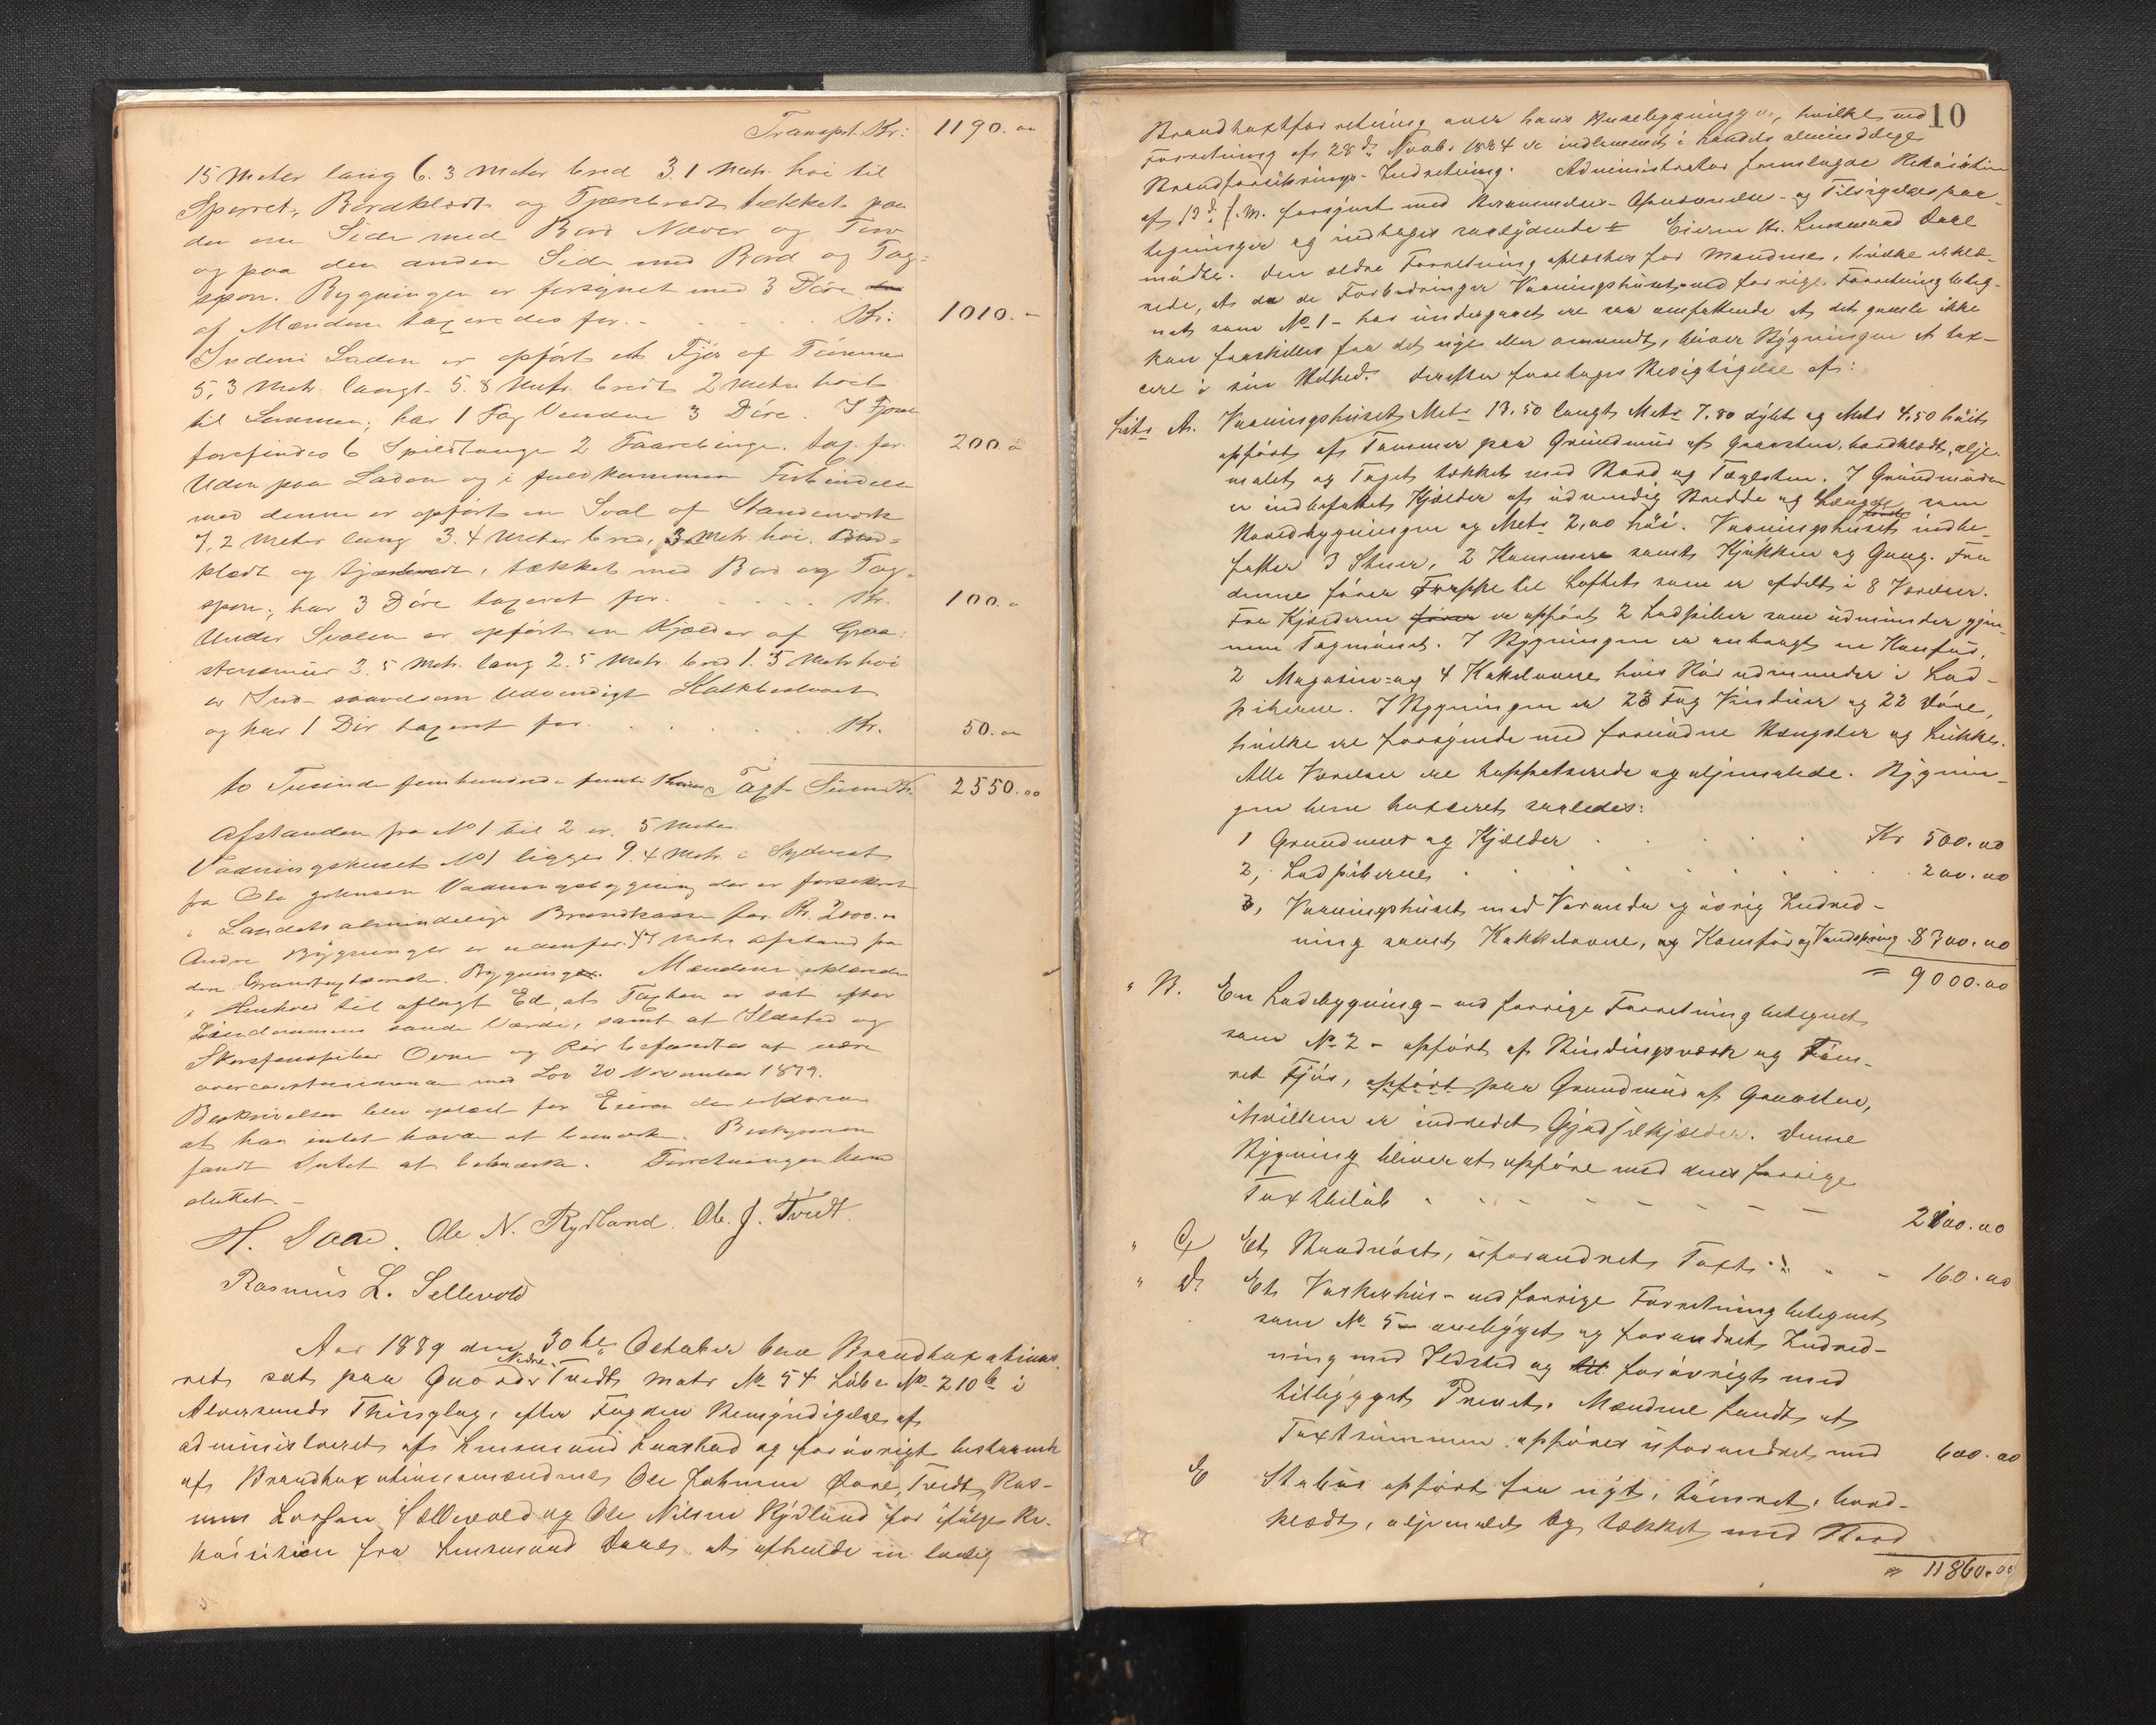 Transprt. Kr: 1190.00
15 Meter lang 6.3 Meter bred 3.1 Metr. høi til
Sperret, Bordklædt og Tjærebredt tækket paa
den ene Side med Bord Næver og Torv
og paa den anden Side med Bord og Tag=
spon. Bygningen er forsynet med 3 Døre
af Mændene taxeredes for. - - - - Kr: 1010.-
Indeni Laden er opført et Fjøs af Tømmer
5,3 Metr. langt. 5.8 Metr. bredt 2 Meter høit
til Lemmen; har 1 Fag Vinduer 3 Døre. I Fjøset
forefindes 6 Spildtouge 2 Faarebinge. tax. for 200.00
Uden paa Laden og i fuldkommen Forbindelse
med denne er opført en Sval af Standeværk
7,2 Meter lang 3.4 Meter bred, 3 Metr. høi. Bord=
klædt og tjærebredt, tækket med Bord og Tag-
spon; har 3 Døre taxeret for. . . . . Kr. 100.00
Under Svalen er opført en Kjælder af Graa=
stensmur 3.5 Metr. lang 2.5 Metr. bred 1.5 Metr høi
er Ind- saavelsom Udvendigt Kalkbestrøget
og har 1 Dør taxeret for. . . . . Kr. 50.00
to Tusinde femhundrede femti Kroner Taxt Sum Kr. 2550.00
Afstanden fra No 1 til 2 er. 5 Meter.
Vaaningshuset No 1 ligger 9.4 Metr. i Sydvest
fra Ole Johnsen Vaaningsbygning der er forsikret
i Landets almindelige Brandkasse for Kr. 2000.00
Andre Bygninger er udenfor 47 Metr Afstand fra
den Brandtaxerede Bygninger. Mændene erklærede
i Henhold til aflagt Ed, at Taxten er sat efter
Eiendommens sande Værdi, samt at Ildsted og
Skorstenspiber Ovne og Rør befandtes at være
overensstemmende med Lov 20 November 1879.
Beskrivelsen blev oplæst for Eieren der erklærede
at han intet havde at bemærke. Bestyreren
fandt Intet at bemærke. Forretningen hermed
sluttet.-
H. Daae. Ole N. Rydland. Ole J. Tvedt.
Rasmus L. Sellevold
Aar 1889 den 30te October blev Brandtaxations
ret sat paa Gaarden Nedre Tvedt Matr No 54 Løbe No 210b i
Alversunds Thinglag, efter Fogden Bemyndigelse af
administreret af Lensmand Laastad og forøvrigt bestaaende
af Brandtaxationsmændene Ole Johnsen Øvre Tvedt, Ras-
mus Larsen Sellevold og Ole Nilsen Rydland for ifølge Re-
kvisition fra Lensmand Daae, at afholde en lovlig
10
Brandtaxtforretning over hans Husebygninger, hvilke ved
Forretning af 28de Novbr 1884 er indlemmet i Landets almindelige
Brandforsikrings-Indretning. Administrator fremlagde Rekvisition
af 13de f.M. forsynet med Berammelses- Opnævnelse- og Tilsigelsespaa-
tegninger og indtages saalydende # Eieren Hr. Lensmand Daae
mødte. Den ældre Forretning oplæstes for Mændene, hvilke erklæ-
rede, at da de Forbedringer Vaaningshuset ved forrige Forretning beteg-
net som No 1 - har undergaaet ere saa omfattende at det gamle ikke
kan forskilles fra det nye eller omvendt, bliver Bygningen at tax-
cere i sin Helhed. Derefter foretages Besigtigelse af:
Litr A. Vaaningshuset Metr 13.50 langt Metr 7.80 dybt og Metr 4,50 høit
opført af Tømmer paa Grundmur af Graasten, bordklædt, olje-
malet og Taget tækket med Bord og Tagsten. I Grundmuren
er indbefattet Kjælder af udvendig Bredde og Længde som
Hovedbygningen og Metr 2,00 høi. Vaaningshusets første indbe-
fatter 3 Stuer, 2 Kammere samt Kjøkken og Gang. Fra
denne fører Trappe til Loftet som er afdelt i 8 Værelser.
Fra Kjælderen fører er opført 2 Ladpiber som udmunder gjen-
nem Tagmønet. I Bygningen er anbragt en Komfur,
2 Magasin- og 4 Kakelovne hvis Rør udmunder i Lad-
piberne. I Bygningen er 23 Fag Vinduer og 22 Døre,
hvilke ere forsynede med fornødne Hængsler og Lukker.
Alle Værelser ere tappetserede og oljemalede. Bygnin-
gen blev taxeret saaledes:
1 Grundmur og Kjælder . . . . Kr 500.00
2, Ladpiberne . . . . . . . 200.00
3, Vaaningshuset med Veranda og øvrig Indred-
ning samt Kakkelovne, og Komfur og Vandspring 8300.00
= 9000.00
" B. En Ladebygning - ved forrige Forretning betegnet
som No 2 - opført af Bindingsværk og Tøm-
ret Fjøs, opført paa Grundmur af Graasten,
i hvilken er indredet Gjødselkjælder. Denne
Bygning bliver at opføre med dens forrige
Taxtbeløb - - - - - - - - 2100.00
" C Et Baadnøst, uforandret Taxt - - - 160.00
" D. Et Vaskerhus - ved forrige Forretning betegnet
som No 5 - ombygget og forandret Indred-
ning med Ildsted og til forøvrigt med
tilbygget Privet. Mændene fandt, at
Taxtsummen opføres uforandret med 600.00
E Stabur opført fra nyt, tømret, bord-
klædt, oljemalet og tækket med Bord
" 11860.00